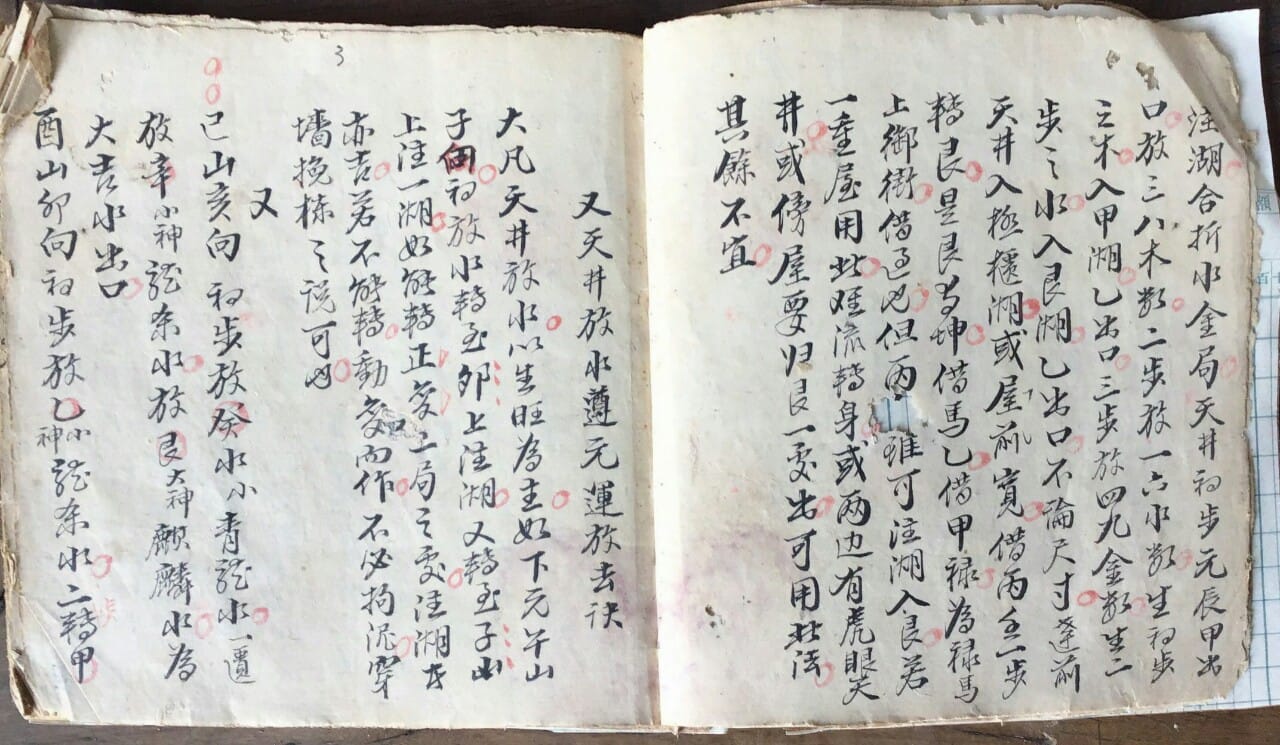 注湖合折水金局天井初步元辰甲出
口放三八木数二步放一六水数生初步
之木入甲湖乙出口三步放四九金数生二
步之水入艮湖乙出口不論尺寸逢前
天井入極櫃湖或屋前寬借丙壬一步
轉艮是艮為坤借馬乙借甲禄為禄馬
上御街借過也但丙 雖可注湖入艮若
一重屋用此难流轉身或两边有虎眼天
井或傍屋要归艮一処出可用此法
其餘不宜
又天井放水遵元運放去訣
大凡天井放水以生旺為主如下元午山
子向初放水轉至卯上注湖又轉至子山
上注一湖如能轉正亥二局之処注湖者
亦吉若不能轉動変而作不必拘泥穿
墻挽栋之说可也
又
己山亥向 初步放癸水小青龍水一還
放辛小神龍条水放艮大神麒麟水為
大吉水出口
酉山卯向初步放乙小神龍条水二轉甲
3
额